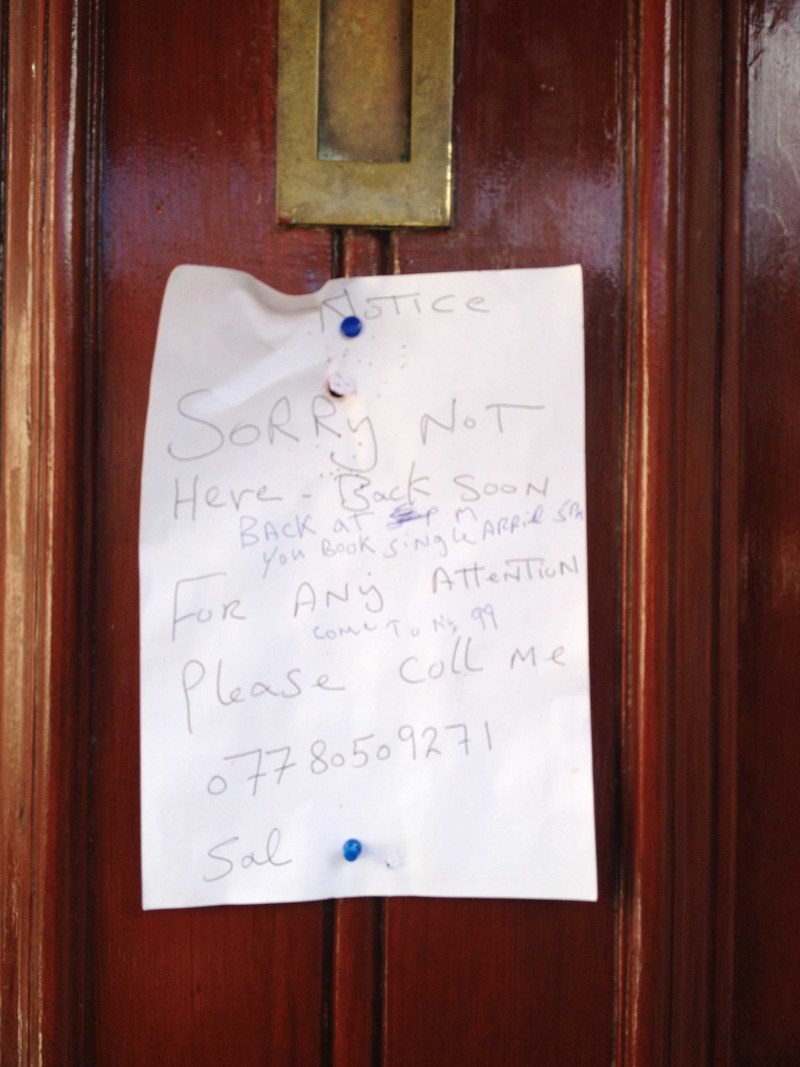 NOTICE
SORRy NOT
Here - Back SOON
BACK AT PM
you BOOK SiNgLe ARRiL 5PM
FOR ANy ATTeNTiON
COMe TO No 99
Please Coll Me
07780509271
Sal